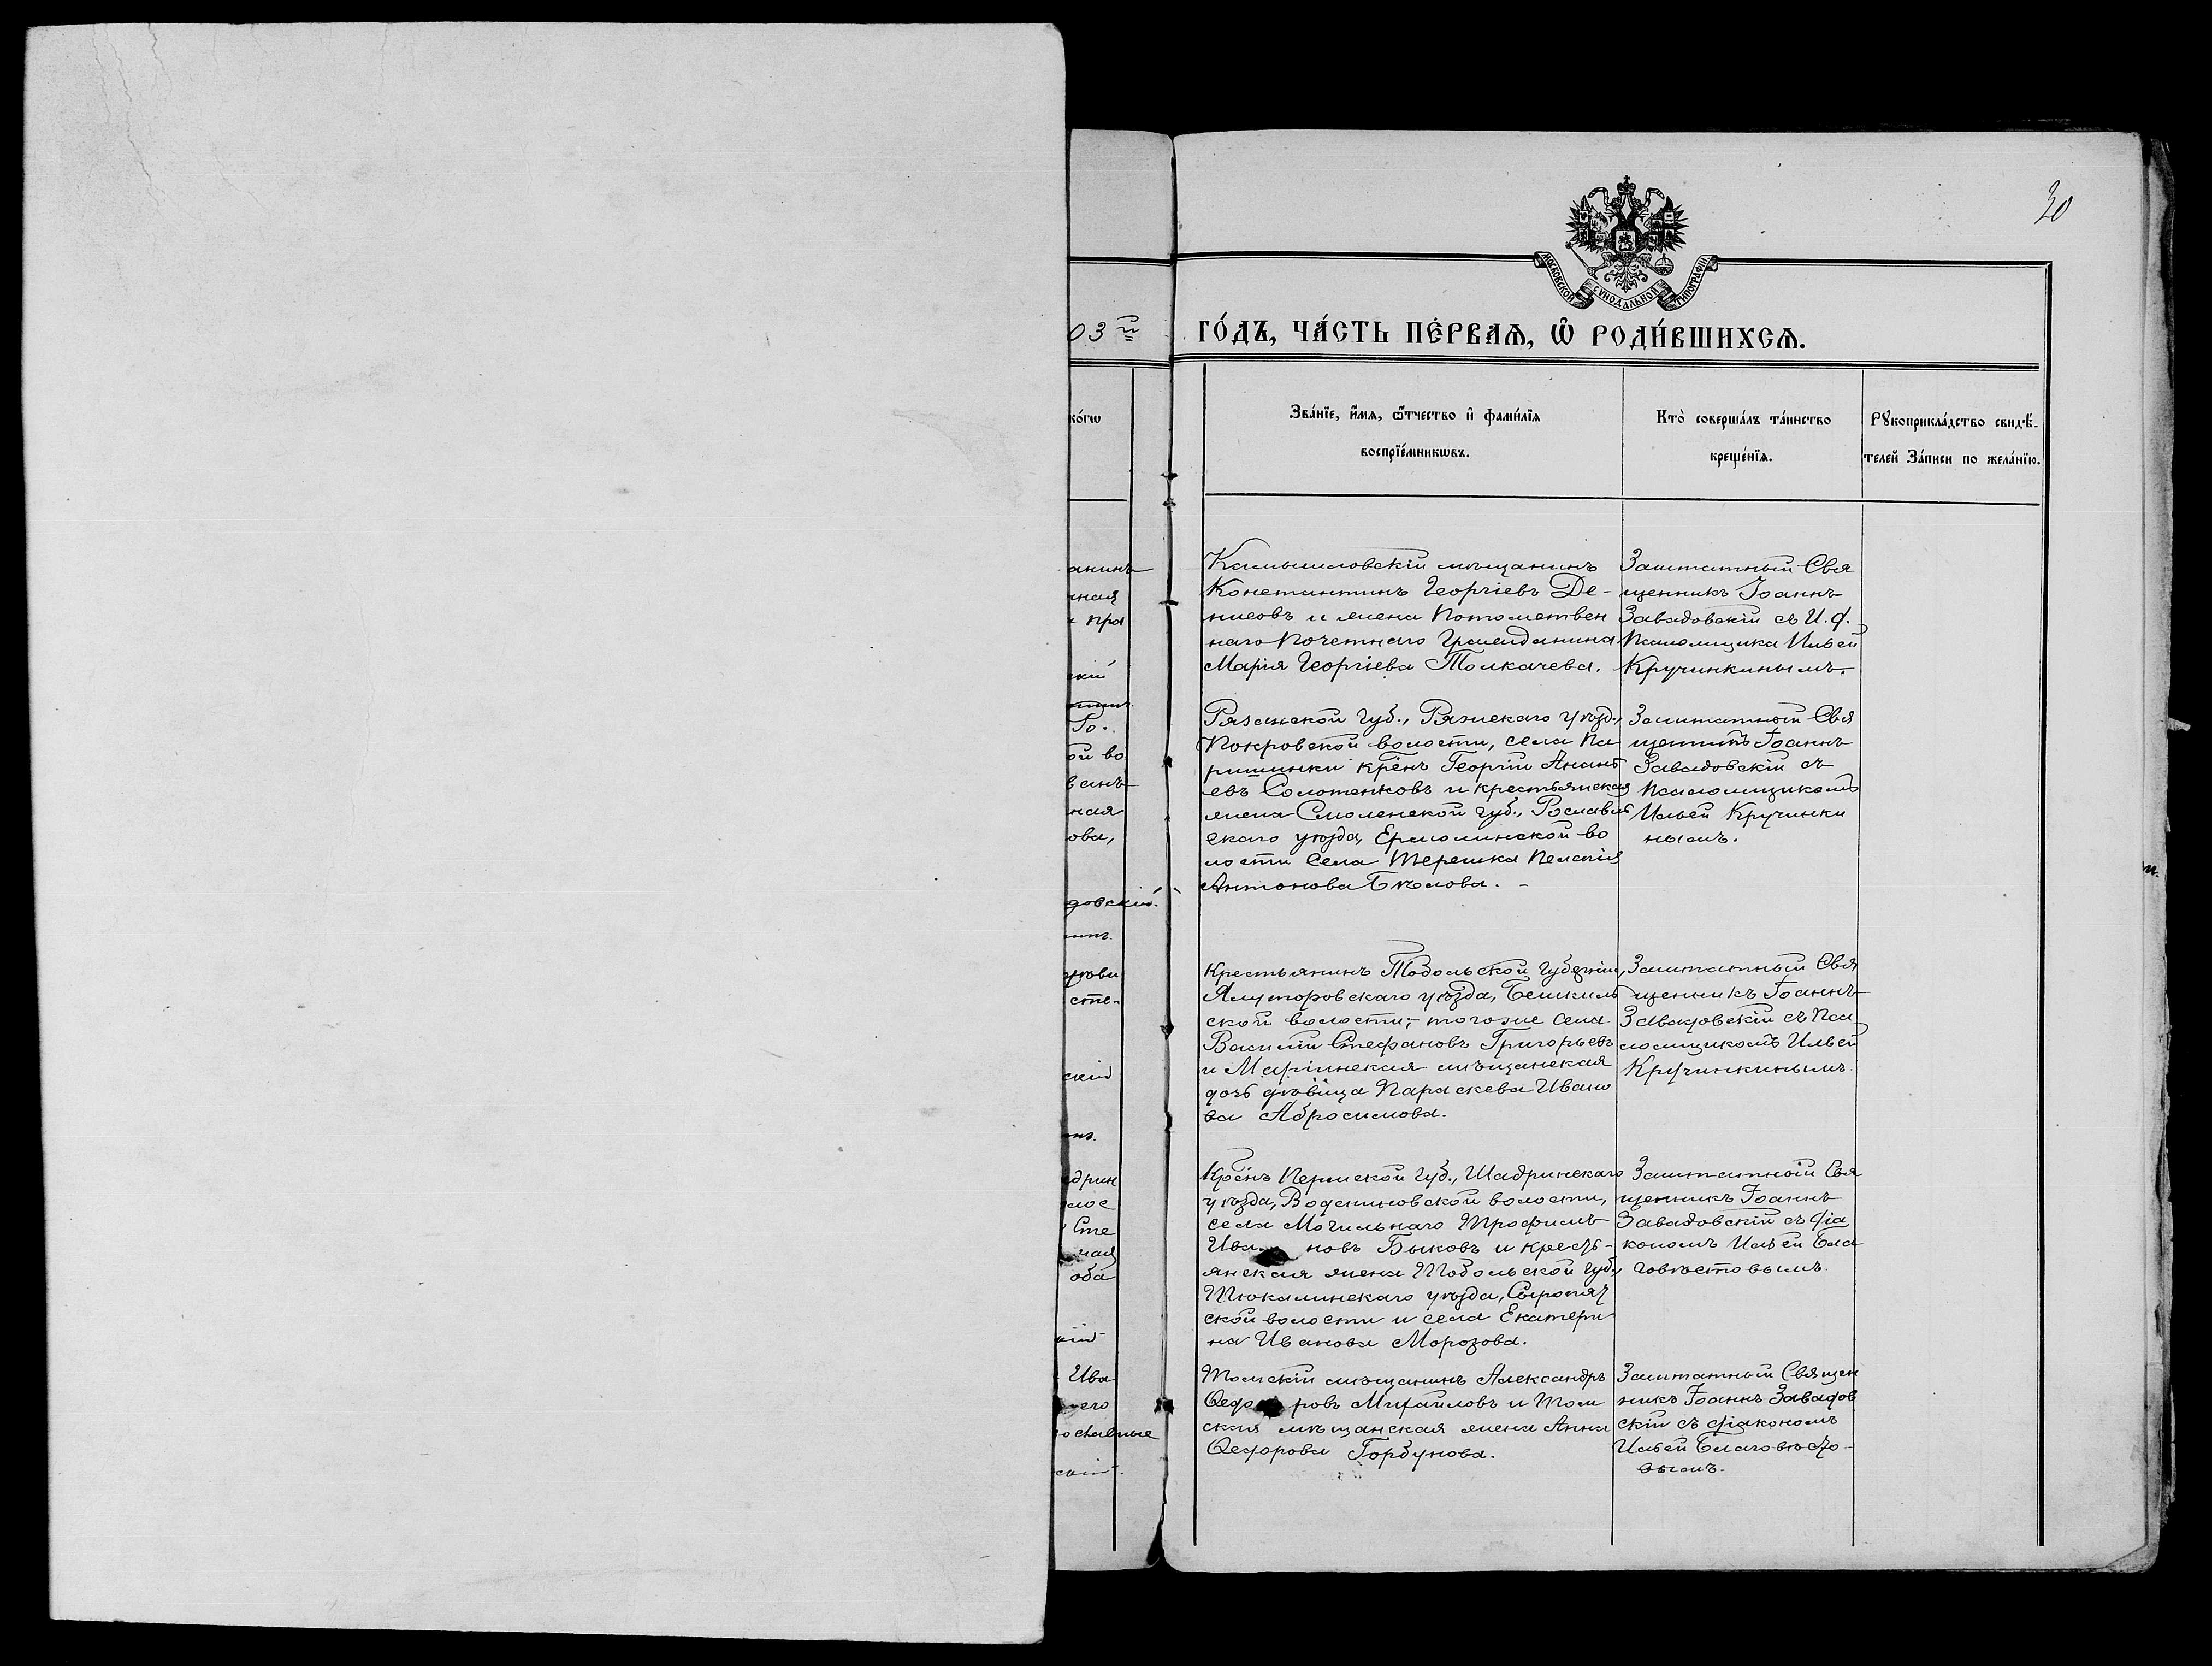 30
МОСКОВСКОЙ СѴНОДАЛЬНОЙ ТИПОГРАФІИ
03 й
ГО́ДЪ, ЧА́СТЬ ПЕ́РВАѦ, Ѡ҆ РОДИ́ВШИХСѦ.
ко́гѡ
Зва́нїе, и҆́мѧ, ѻ҆́тчество и҆ фами́лїѧ
воспрїе́мникѡвъ.
Кто̀ соверша́лъ та́инство
креще́нїѧ.
Рꙋкоприкла́дство свидѣ́-
телей За́писи по жела́нїю.
анинъ
ная
пра
скій
Го-
ой во
ванъ
ная
ова,
довскій.
сте-
скій
дрин
мое
Сте
ная
оба
Ива
него
славные
Камышловскій мѣщанинъ
Константинъ Георгіевъ Де-
нисовъ и жена Потомствен
наго Почетнаго Гражданина
Марія Георгіева Толкачева.
Заштатный Свя
щенникъ Іоаннъ
Завадовскій съ И. д.
Псаломщика Ильей
Кручинкинымъ.
Рязанской губ., Ряжскаго уѣзд.,
Покровской волости, села Па
ришинки крѣнъ Георгій Анань
евъ Солотенковъ и крестьянская
жена Смоленской губ., Рославль
скаго уѣзда, Ермолинской во
лости села Терешка Пелагія
Антонова Бѣлова. -
Заштатный Свя
щенникъ Іоаннъ
Завадовскій съ
Псаломщикомъ
Ильей Кручинки
нымъ.
Крестьянинъ Тобольской губерніи,
Ялуторовскаго уѣзда, Бешкиль
ской волости, - тогоже села
Василій Стефановъ Григорьевъ
и Маріинская мѣщанская
дочь дѣвица Параскева Ивано
ва Абросимова.
Заштатный Свя
щенникъ Іоаннъ
Завадовскій съ Пса
ломщикомъ Ильей
Кручинкинымъ.
Крѣнъ Пермской губ., Шадринскаго
уѣзда, Водениковской волости,
села Могильнаго Трофимъ
Ива новъ Быковъ и кресть-
янская жена Тобольской губ.,
Тюкалинскаго уѣзда, Сыропят
ской волости и села Екатери
на Иванова Морозова.
Заштатный Свя
щенникъ Іоаннъ
Завадовскій съ діа
кономъ Ильей Бла
говѣстовымъ.
Томскій мѣщанинъ Александръ
Ѳедо ровъ Михайловъ и Том
ская мѣщанская жена Анна
Ѳедорова Горбунова.
Заштатный Священ
никъ Іоаннъ Завадов
скій съ діакономъ
Ильей Благовѣсто-
вымъ.